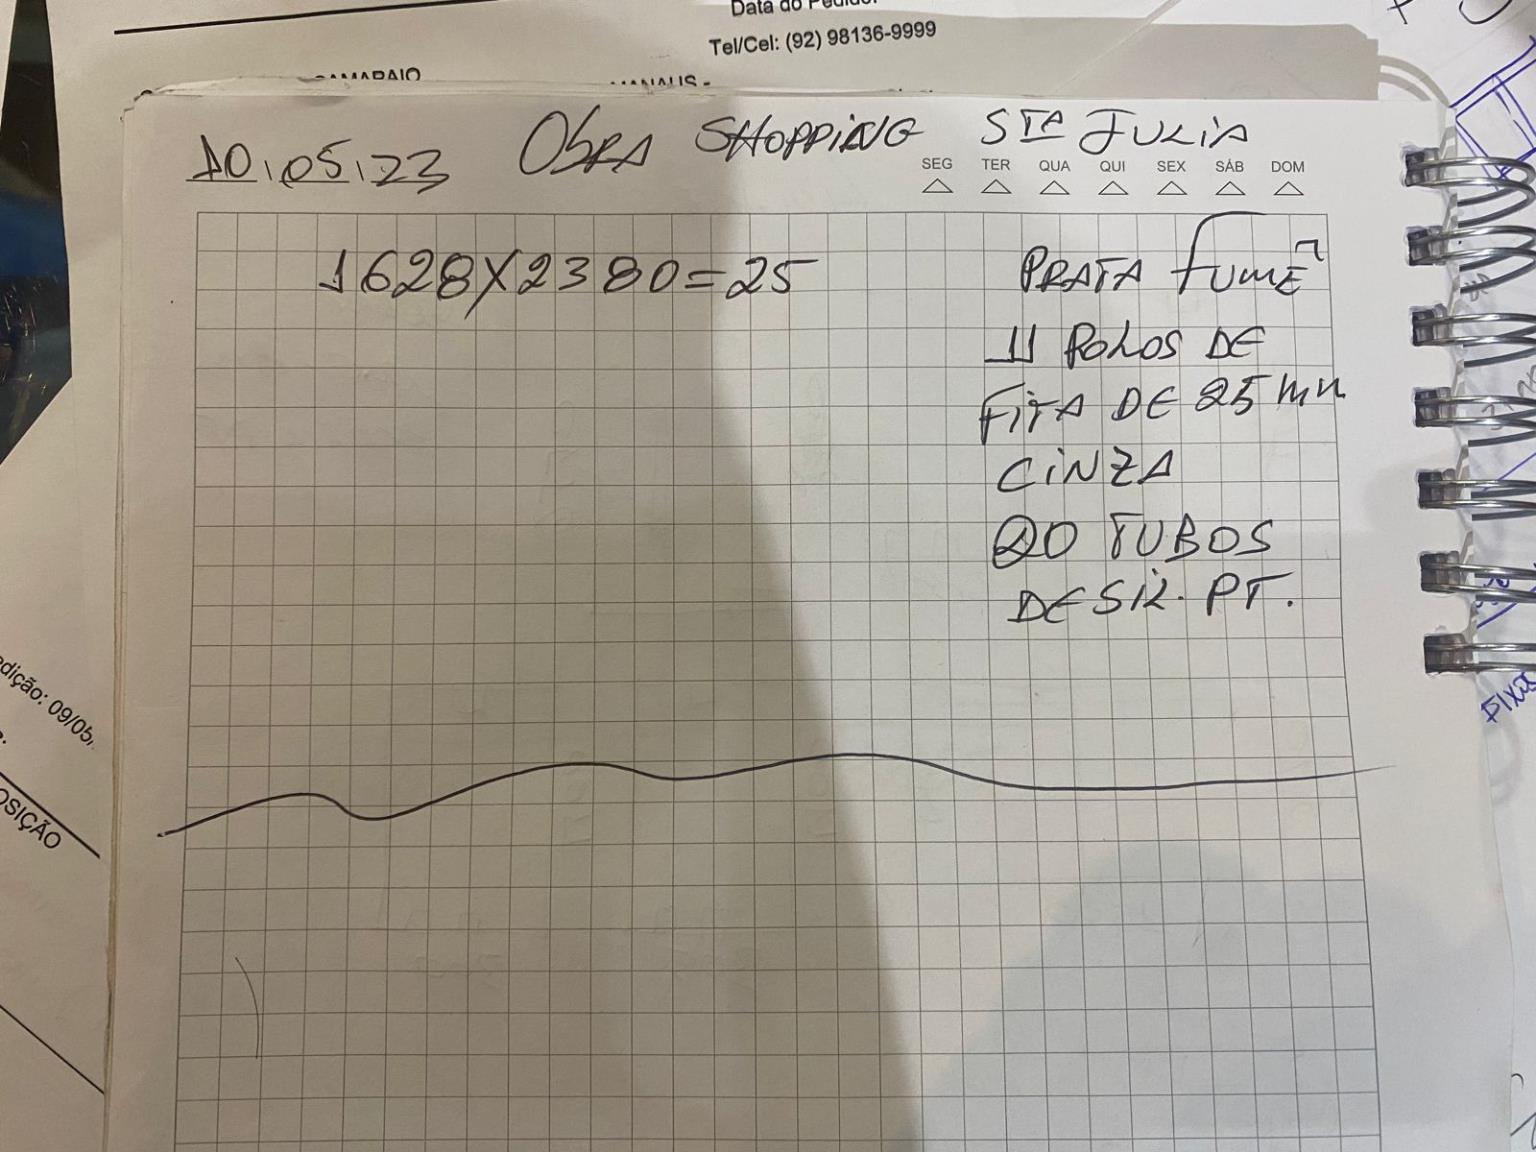 Data do Pedido:
Tel/Cel: (92) 98136-9999
MANAUS -
10.05.23 OBRA SHOPPING STA JULIA
SEG TER QUA QUI SEX SÁB DOM
1628X2380=25
PRATA FUMÊ
11 ROLOS DE
FITA DE 25 mm
CINZA
20 TUBOS
DE SIL. PT.
edição: 09/05/
OSIÇÃO